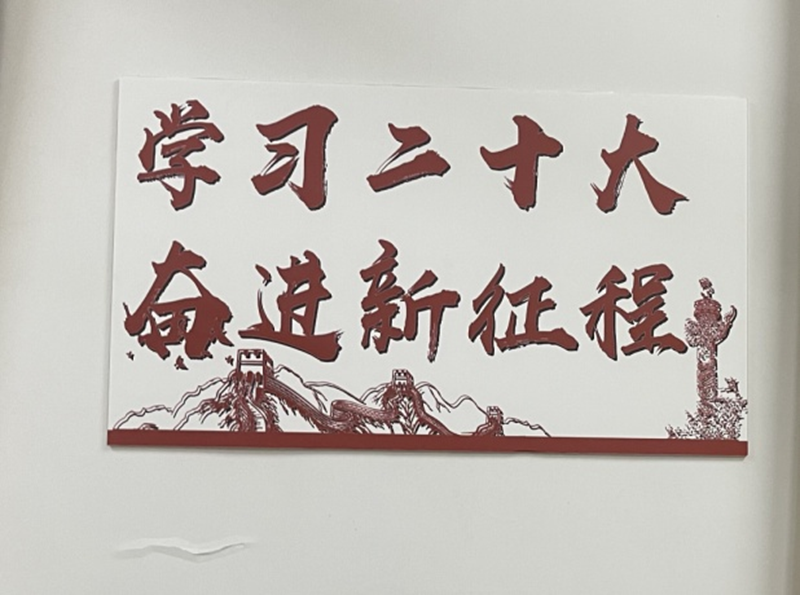 学习二十大
奋进新征程